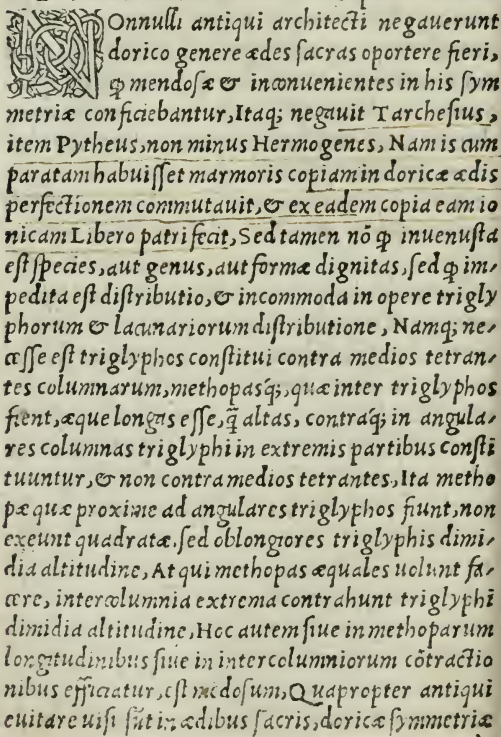 NOnnulli antiqui architecti negauerunt
dorico genere ædes sacras oportere fieri,
ꝙ mendosæ & inconuenientes in his sym
metriæ conficiebantur, Itaq; negauit Tarchesius,
item Pytheus, non minus Hermogenes, Nam is cum
paratam habuisset marmoris copiam in doricæ ædis
perfectionem commutauit, & ex eadem copia eam io
nicam Libero patri fecit, Sed tamen nō ꝙ inuenusta
est species, aut genus, aut formæ dignitas, sed ꝙ im-
pedita est distributio, & incommoda in opere trigly
phorum & lacunariorum distributione, Namq; ne-
cesse est triglyphos constitui contra medios tetran-
tes columnarum, methopasq;, quæ inter triglyphos
fient, æque longas esse, q̄ altas, contraq́; in angula-
res columnas triglyphi in extremis partibus consti
tuuntur, & non contra medios tetrantes, Ita metho
pæ quæ proxime ad angulares triglyphos fiunt, non
exeunt quadratæ, sed oblongiores triglyphis dimi-
dia altitudine, At qui methopas æquales uolunt fa-
cere, intercolumnia extrema contrahunt triglyphi
dimidia altitudine, Hoc autem siue in methoparum
longitudinibus siue in intercolumniorum cōtractio
nibus efficiatur, est mēdosum, Quapropter antiqui
euitare uisi sūt in ædibus sacris, doricæ symmetriæ